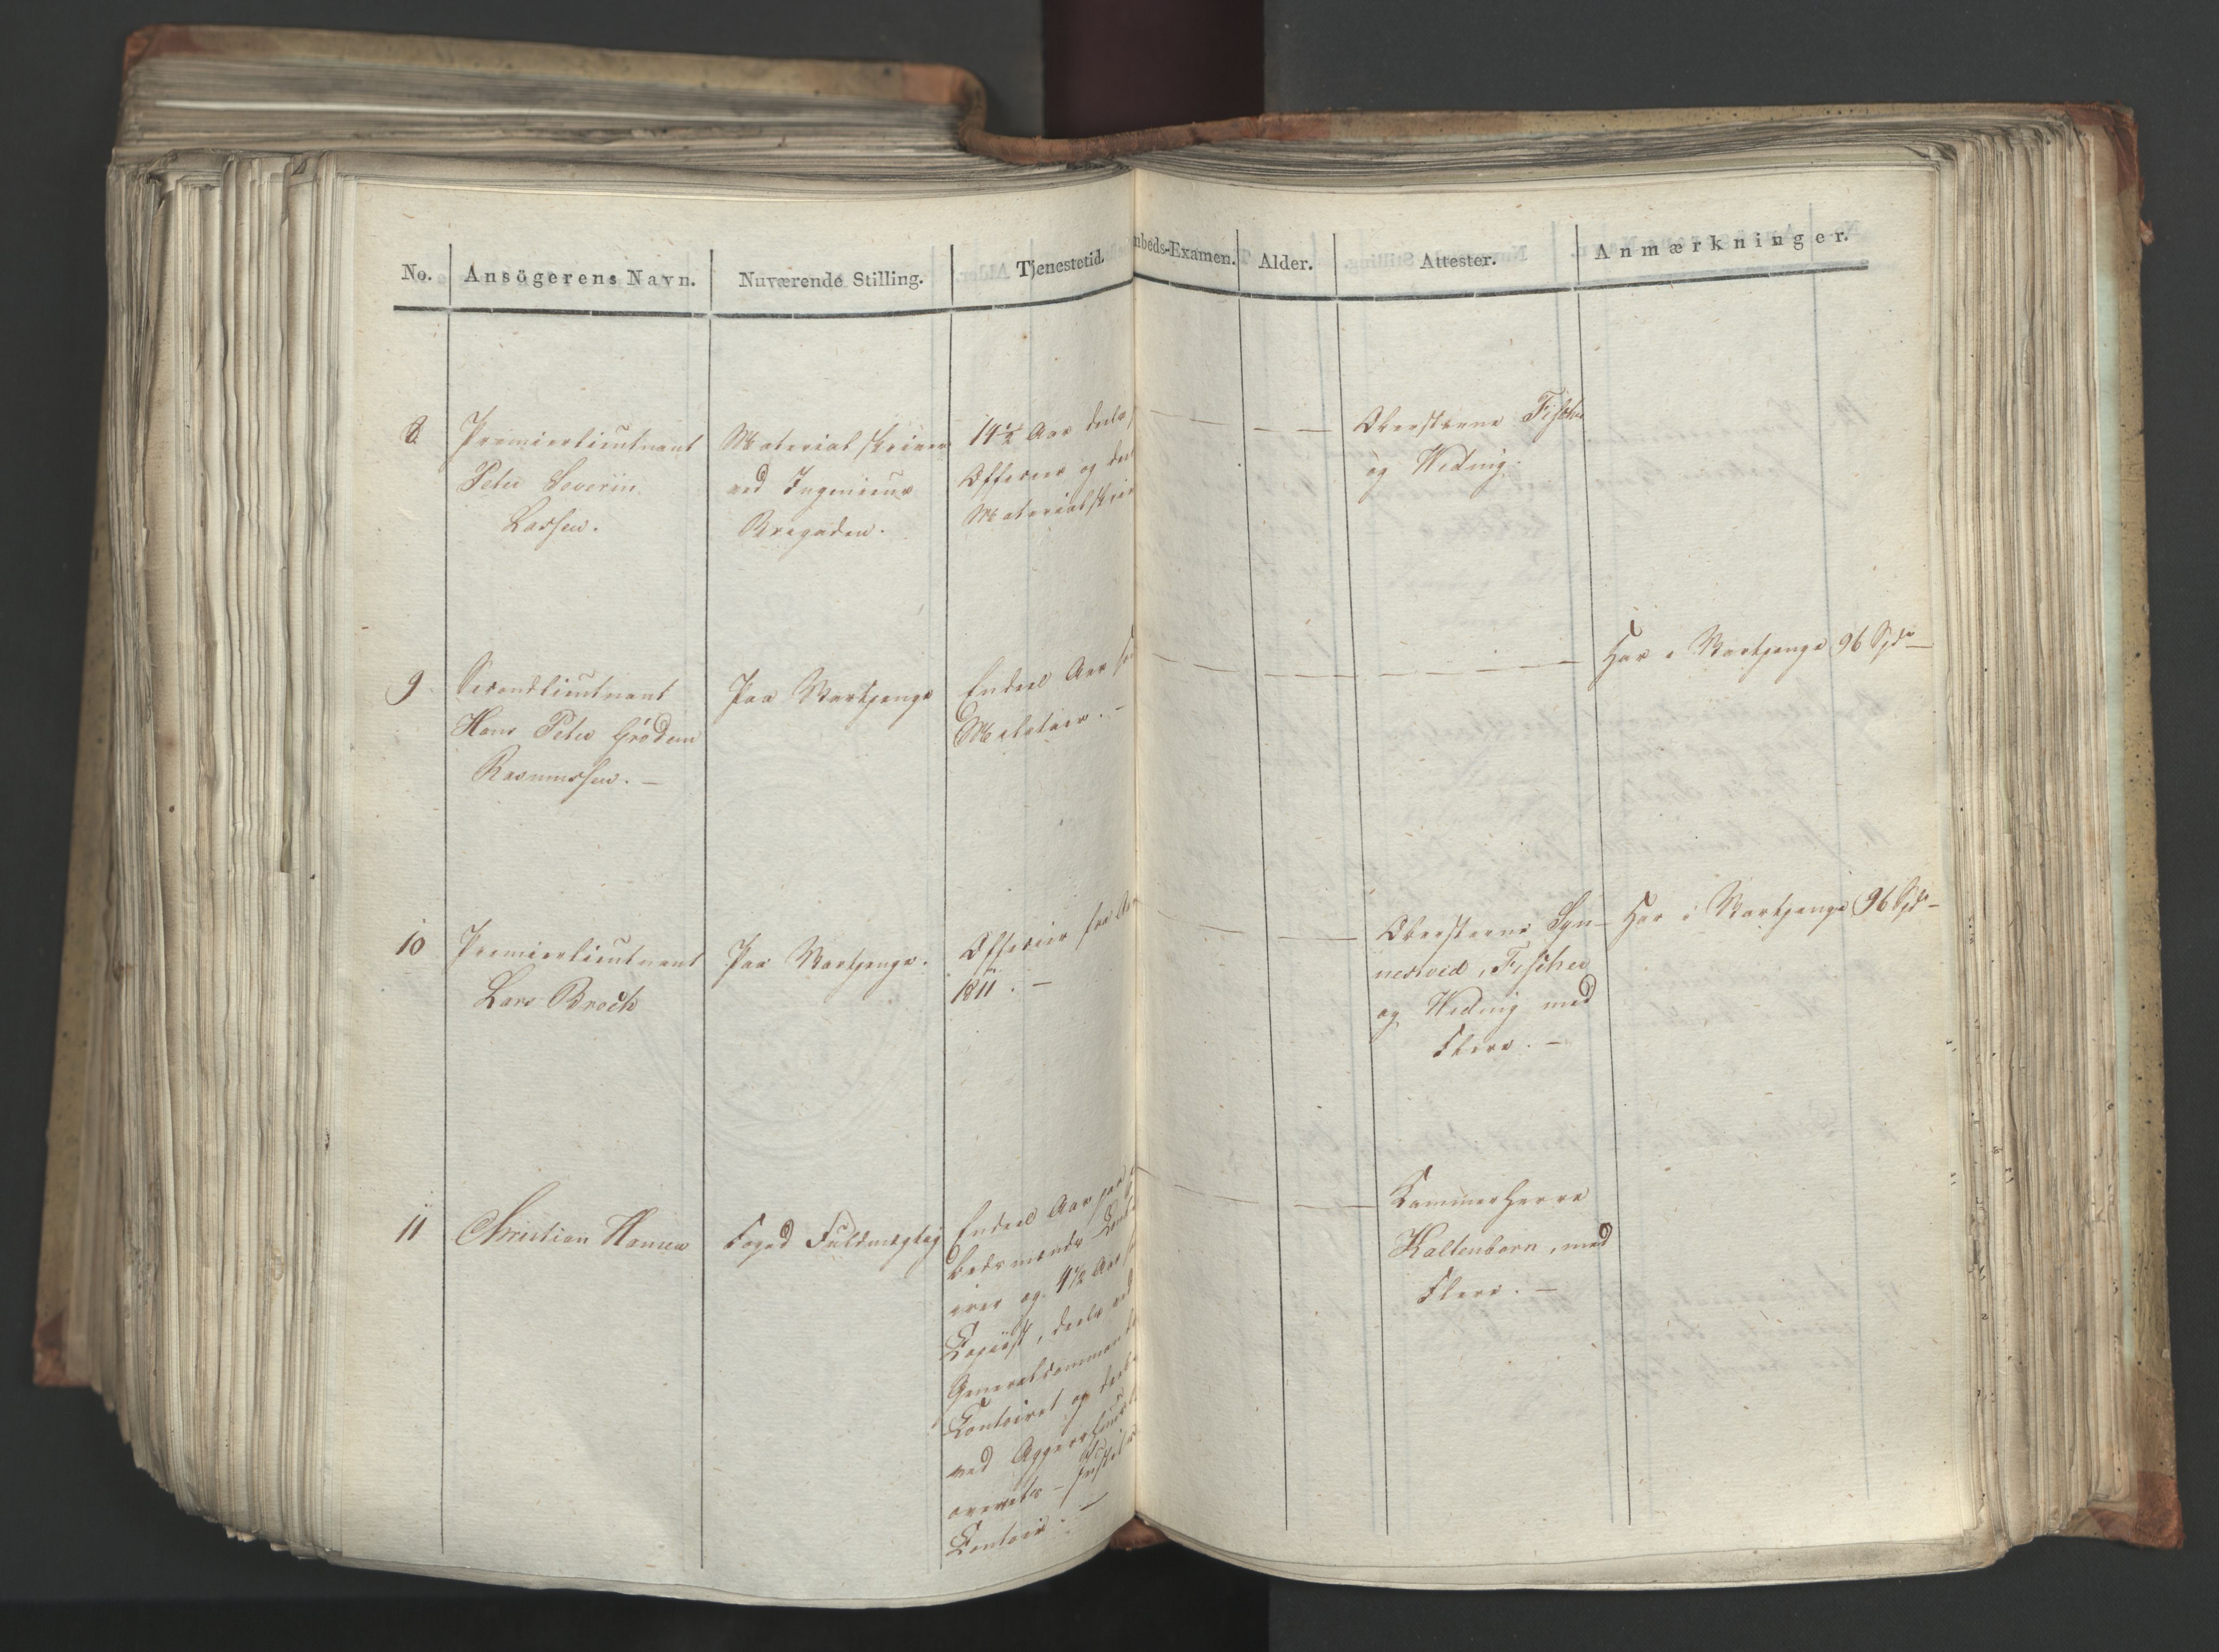 No. Ansögerens Navn. Nuværende Stilling. Tjenestetid.
Embeds-Examen. Alder. Attester. Anmærkninger.
8
Premierlieutnant
Peter Severin
Lassen.
Materialskriver
ved Ingenieur
Brigaden.
14½ Aar deels
Officeer og deels
Materialskriver
Obersterne Fischer
og Weding.
9
Secondlieutnant
Hans Peter Grödem
Rasmussen. —
Paa Vartpenge
Endeel Aar som
Militair. —
Har i Vartpenge 96 Spd —
10
Premierlieutnant
Lars Broch
Paa Vartpenge.
Officeer fra Aar
1811. —
Obersterne Syn-
nestved, Fischer
og Weding med
Flere. —
Har i Vartpenge 96 Spd —
11
Christian Hansen
Foged Fuldmægtig
Endeel Aar paa
bedsmænds Conto-
irer og 4½ Aar
Copiist, deels ved
Generalcommando
Contoiret og deels
ved Aggershuus
Contoir. —
Kammerherre
Kaltenborn, med
Flere. —